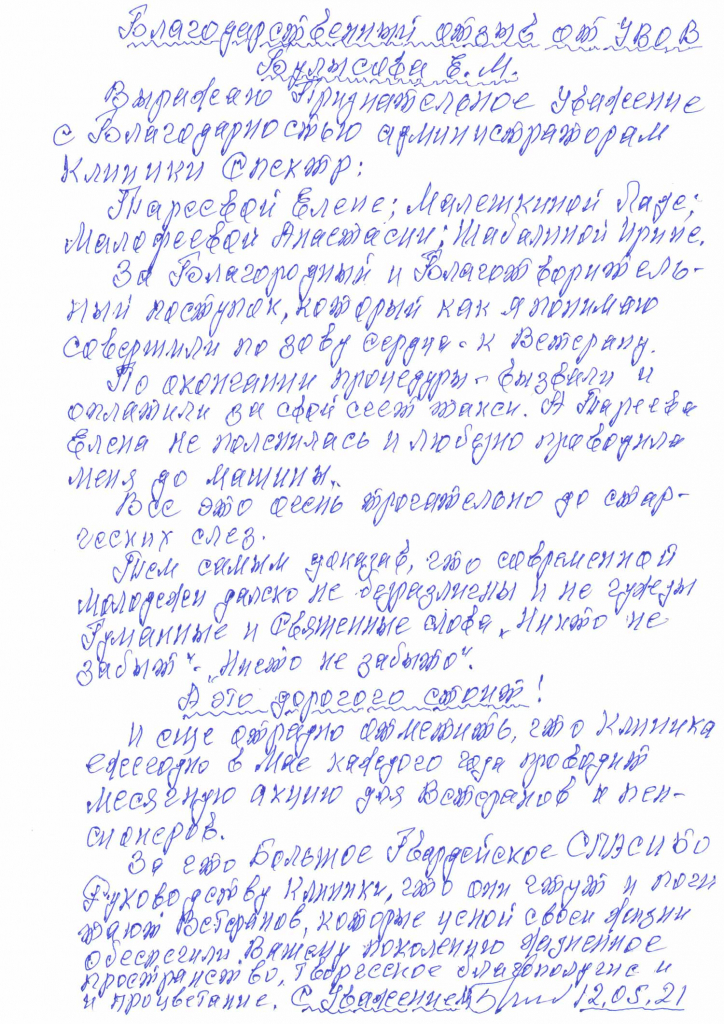 Благодарственный отзыв от УВОВ
Булысова Е.М.
Выражаю Признательное Уважение
с Благодарностью администраторам
Клиники Спектр:
Тареевой Елене; Малешкиной Ладе;
Малофеевой Анастасии; Шабалиной Ирине.
За Благородный и Благотворитель-
ный поступок, который как я понимаю
совершили по зову сердца - к Ветерану.
По окончании процедуры - вызвали и
оплатили за свой счет такси. А Тареева
Елена не поленилась и любезно проводила
меня до машины.
Все это очень трогательно до стар-
ческих слез.
Тем самым доказав, что современной
молодежи далеко не безразличны и не чужды
Гуманные и Священные слова „Никто не
забыт" - „Ничто не забыто".
А это дорогого стоит!
И еще отрадно отметить, что Клиника
ежегодно в Мае каждого года проводит
месячную акцию для Ветеранов и пен-
сионеров.
За что Большое Гвардейское СПАСИБО
Руководству Клиники, что они чтут и почи
тают Ветеранов, которые ценой своей жизни
обеспечили Вашему поколению жизненное
пространство, Творческое благополучие и
и процветание. С Уважением 12.05.21